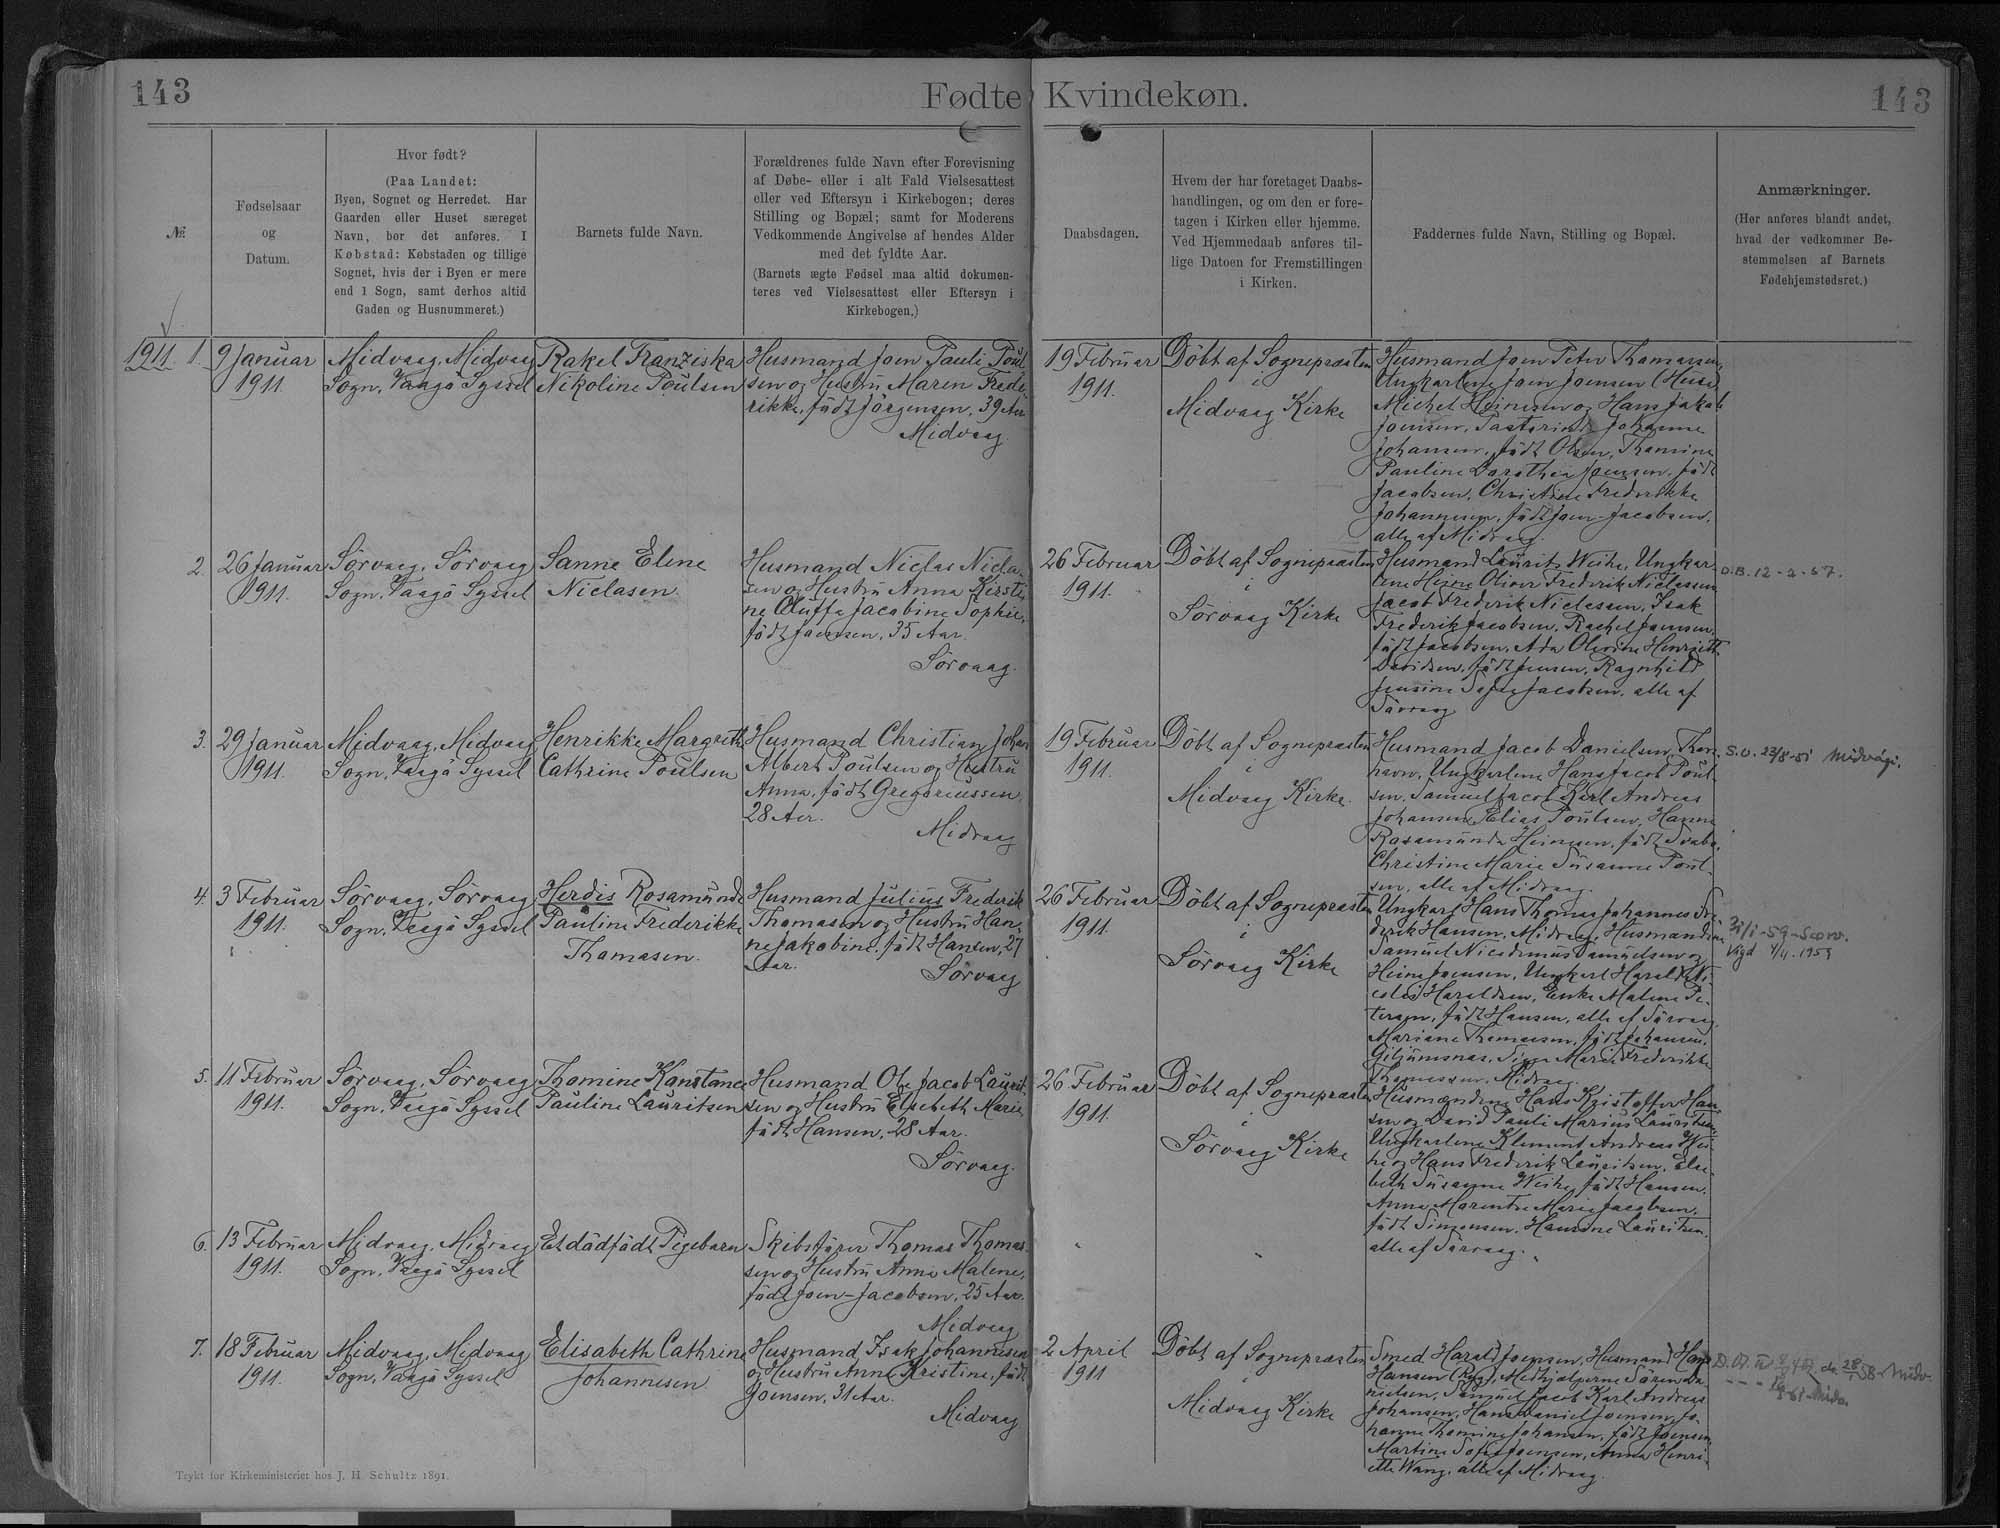 143
Fødte Kvindekøn.
143
№
Fødselsaar
og
Datum.
Hvor født?
(Paa Landet:
Byen, Sognet og Herredet. Har
Gaarden eller Huset særeget
Navn, bør det anføres. I
Købstad: Købstaden og tillige
Sognet, hvis der i Byen er mere
end 1 Sogn, samt derhos altid
Gaden og Husnummeret.)
Barnets fulde Navn.
Forældrenes fulde Navn efter Forevisning
af Døbe- eller i alt Fald Vielsesattest
eller ved Eftersyn i Kirkebogen; deres
Stilling og Bopæl; samt for Moderens
Vedkommende Angivelse af hendes Alder
med det fyldte Aar.
(Barnets ægte Fødsel maa altid dokumen-
teres ved Vielsesattest eller Eftersyn i
Kirkebogen.)
Daabsdagen.
Hvem der har foretaget Daabs-
handlingen, og om den er fore-
tagen i Kirken eller hjemme.
Ved Hjemmedaab anføres til-
lige Datoen for Fremstillingen
i Kirken.
Faddernes fulde Navn, Stilling og Bopæl.
Anmærkninger.
(Her anføres blandt andet,
hvad der vedkommer Be-
stemmelsen af Barnets
Fødehjemstedsret.)
1911. 1.
9 Januar
1911.
Midvaag, Midvaag
Sogn, Vaagø Syssel
Rakel Franziska
Nikoline Poulsen
Husmand Joen Pauli Poul-
sen og Hustru Maren Frede-
rikke, født Jörgensen, 39 Aar
Midvaag
19 Februar
1911.
Döbt af Sognepræsten
i
Midvaag Kirke
Husmand Joen Peter Thomassen,
Ungkarlene Joen Joensen (Hus),
Michel Heinesen og Hans Jakob
Joensen, Pastorinde Johanne
Johansen, født Olsen, Thomine
Pauline Dorothea Joensen, født
Jacobsen, Christine Frederikke
Johannesen, født Joen-Jacobsen,
alle af Midvaag.
2.
26 Januar
1911.
Sörvaag, Sörvaag
Sogn, Vaagö Syssel
Sanna Elene
Niclasen
Husmand Niclas Nicla-
sen og Hustru Anna Kirsti-
ne Oluffa Jacobine Sophie,
født Joensen, 35 Aar.
Sörvaag.
26 Februar
1911.
Döbt af Sognepræsten
i
Sörvaag Kirke
Husmand Laurits Weihe, Ungkar-
lene Heine Oliver Frederik Niclassen,
Jacob Frederik Niclassen, Isak
Frederik Jacobsen, Rachel Joensen,
født Jacobsen, Ada Olevine Henriette
Davidsen, født Jensen, Ragnhild
Jensine Sofie Jacobsen, alle af
Sörvaag
D.B. 12-2-57.
3.
29 Januar
1911.
Midvaag, Midvaag
Sogn, Vaagö Syssel
Henrikke Margreth
Cathrine Poulsen
Husmand Christian Johan
Albert Poulsen og Hustru
Anna, født Gregoriussen
28 Aar.
Midvaag
19 Februar
1911.
Döbt af Sognepræsten
i
Midvaag Kirke.
Husmand Jacob Danielsen, Thors-
havn, Ungkarlene Hans Jacob Poul-
sen, Samuel Jacob Karl Andreas
Johansen, Elias Poulsen, Hanne
Rosamunda Heinesen, født Svabo,
Christine Marie Susanne Poul-
sen, alle af Midvaag.
S.O. 23/8-51 Miðvági.
4.
3 Februar
1911.
Sörvaag, Sörvaag
Sogn, Vaagö Syssel
Herdis Rosamunde
Pauline Frederikke
Thomasen.
Husmand Julius Frederik
Thomasen og Hustru Han-
ne Jakobine, født Hansen, 27
Aar.
Sörvaag
26 Februar
1911.
Döbt af Sognepræsten
i
Sörvaag Kirke
Ungkarl Hans Thomas Johannes Fre-
derik Hansen, Midvaag, Husmændene
Samuel Nicodemus Samuelsen og
Heine Joensen, Ungkarl Harald Ni-
colai Haraldsen, Enke Malene Pe-
tersen, født Hansen, alle af Sörvaag,
Mariane Thomassen, født Johansen,
Giljumsnæs, Sigga Marie Frederikke
Thomassen, Midvaag.
31/1-59 - Sorv.
Vigd 4/4-1959
5.
11 Februar
1911.
Sörvaag, Sörvaag
Sogn, Vaagö Syssel
Thomine Konstance
Pauline Lauritsen
Husmand Ole Jacob Laurit-
sen og Hustru Elsebeth Marie
født Hansen, 28 Aar.
Sörvaag.
26 Februar
1911.
Döbt af Sognepræsten
i
Sörvaag Kirke
Husmændene Hans Kristoffer Han-
sen og David Pauli Marius Lauritsen,
Ungkarlene Klement Andreas Wei-
he og Hans Frederik Lauritsen, Else-
beth Susanne Weihe, født Hansen,
Anna Marentse Marie Jacobsen,
født Simonsen, Hansine Lauritsen,
alle af Sörvaag.
6.
13 Februar
1911.
Midvaag, Midvaag
Sogn, Vaagö Syssel
Et dödfødt Pigebarn
Skibsfører Thomas Thomas-
sen og Hustru Anna Malene,
født Joen-Jacobsen, 25 Aar.
Midvaag
7.
18 Februar
1911.
Midvaag, Midvaag
Sogn, Vaagö Syssel
Elisabeth Cathrine
Johannesen
Husmand Isak Johannesen
og Hustru Anne Kristine, født
Joensen, 31 Aar.
Midvaag
2 April
1911
Döbt af Sognepræsten
i
Midvaag Kirke
Smed Harald Joensen, Husmand Hans
Hansen (Ryg), Medhjælperne Sören Da-
nielsen, Samuel Jacob Karl Andreas
Johansen, Hans Daniel Joensen, Jo-
hanne Thomine Johansen, født Joensen,
Martine Sofie Joensen, Anna Henri-
ette Wang, alle af Midvaag.
Trykt for Kirkeministeriet hos J. H. Schultz 1891.